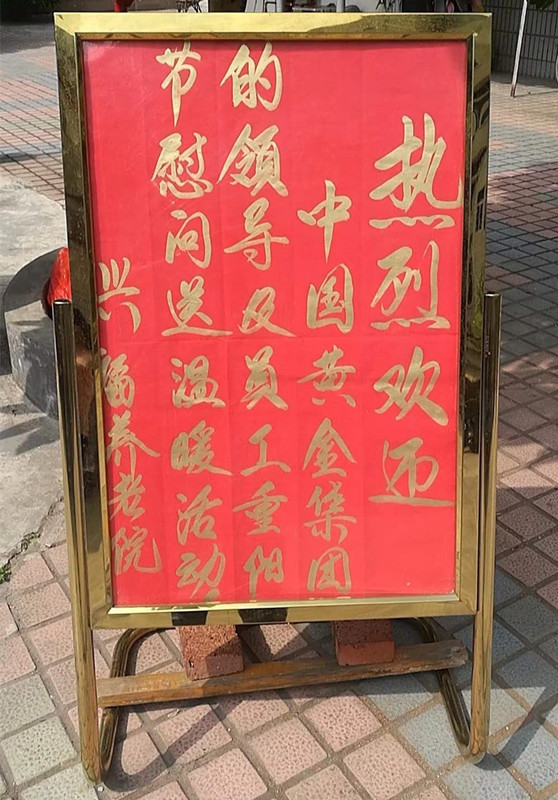 热烈欢迎
中国黄金集团
的领导及员工重阳
节慰问送温暖活动
兴福养老院